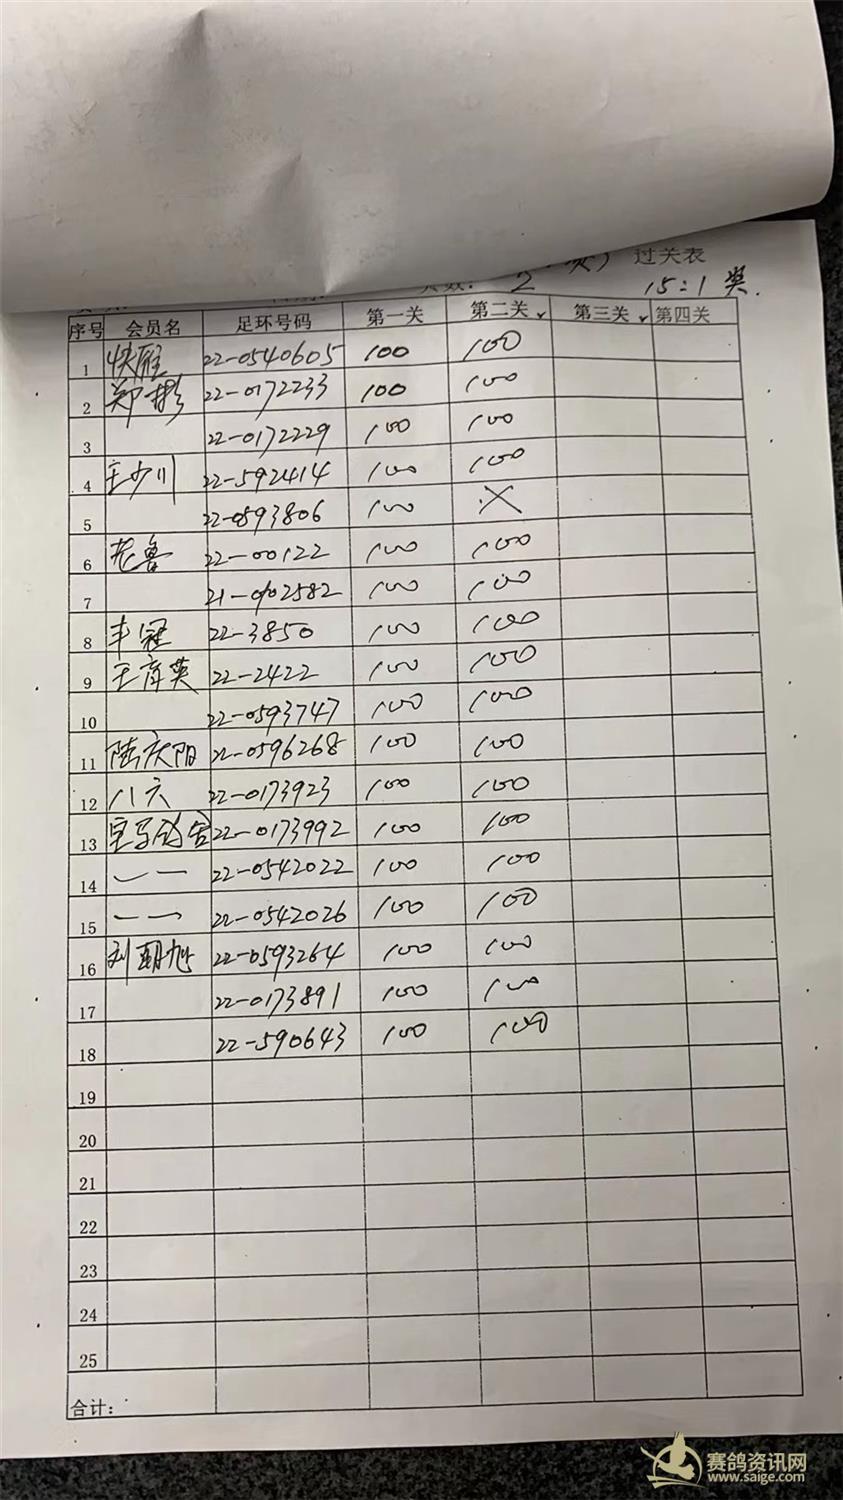 过关表
2 15:1 奖.
序号 会员名 足环号码 第一关 第二关 第三关 第四关
1 快雁 22-0540605 100 100
2 郑彬 22-0172233 100 100
3 22-0172229 100 100
4 王少川 22-592414 100 100
5 22-0593806 100 X
6 老鲁 22-00122 100 100
7 21-0102582 100 100
8 丰冠 22-3850 100 100
9 王育英 22-2422 100 100
10 22-0593747 100 100
11 陆庆阳 22-0596268 100 100
12 八六 22-0173923 100 100
13 宝马鸽舍 22-0173992 100 100
14 一一 22-0542022 100 100
15 一一 22-0542026 100 100
16 刘朝旭 22-0593264 100 100
17 22-0173891 100 100
18 22-590643 100 100
19
20
21
22
23
24
25
合计:
赛鸽资讯网
www.saige.com